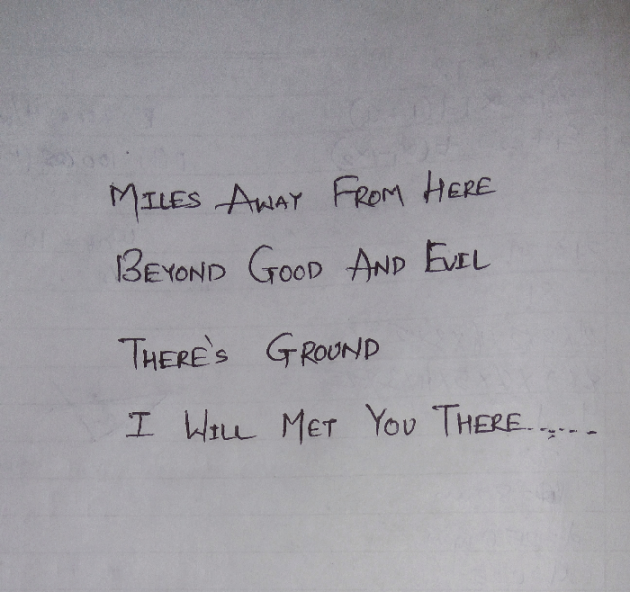 Miles Away From Here
Beyond Good And Evil
There's Ground
I Will Met You There......